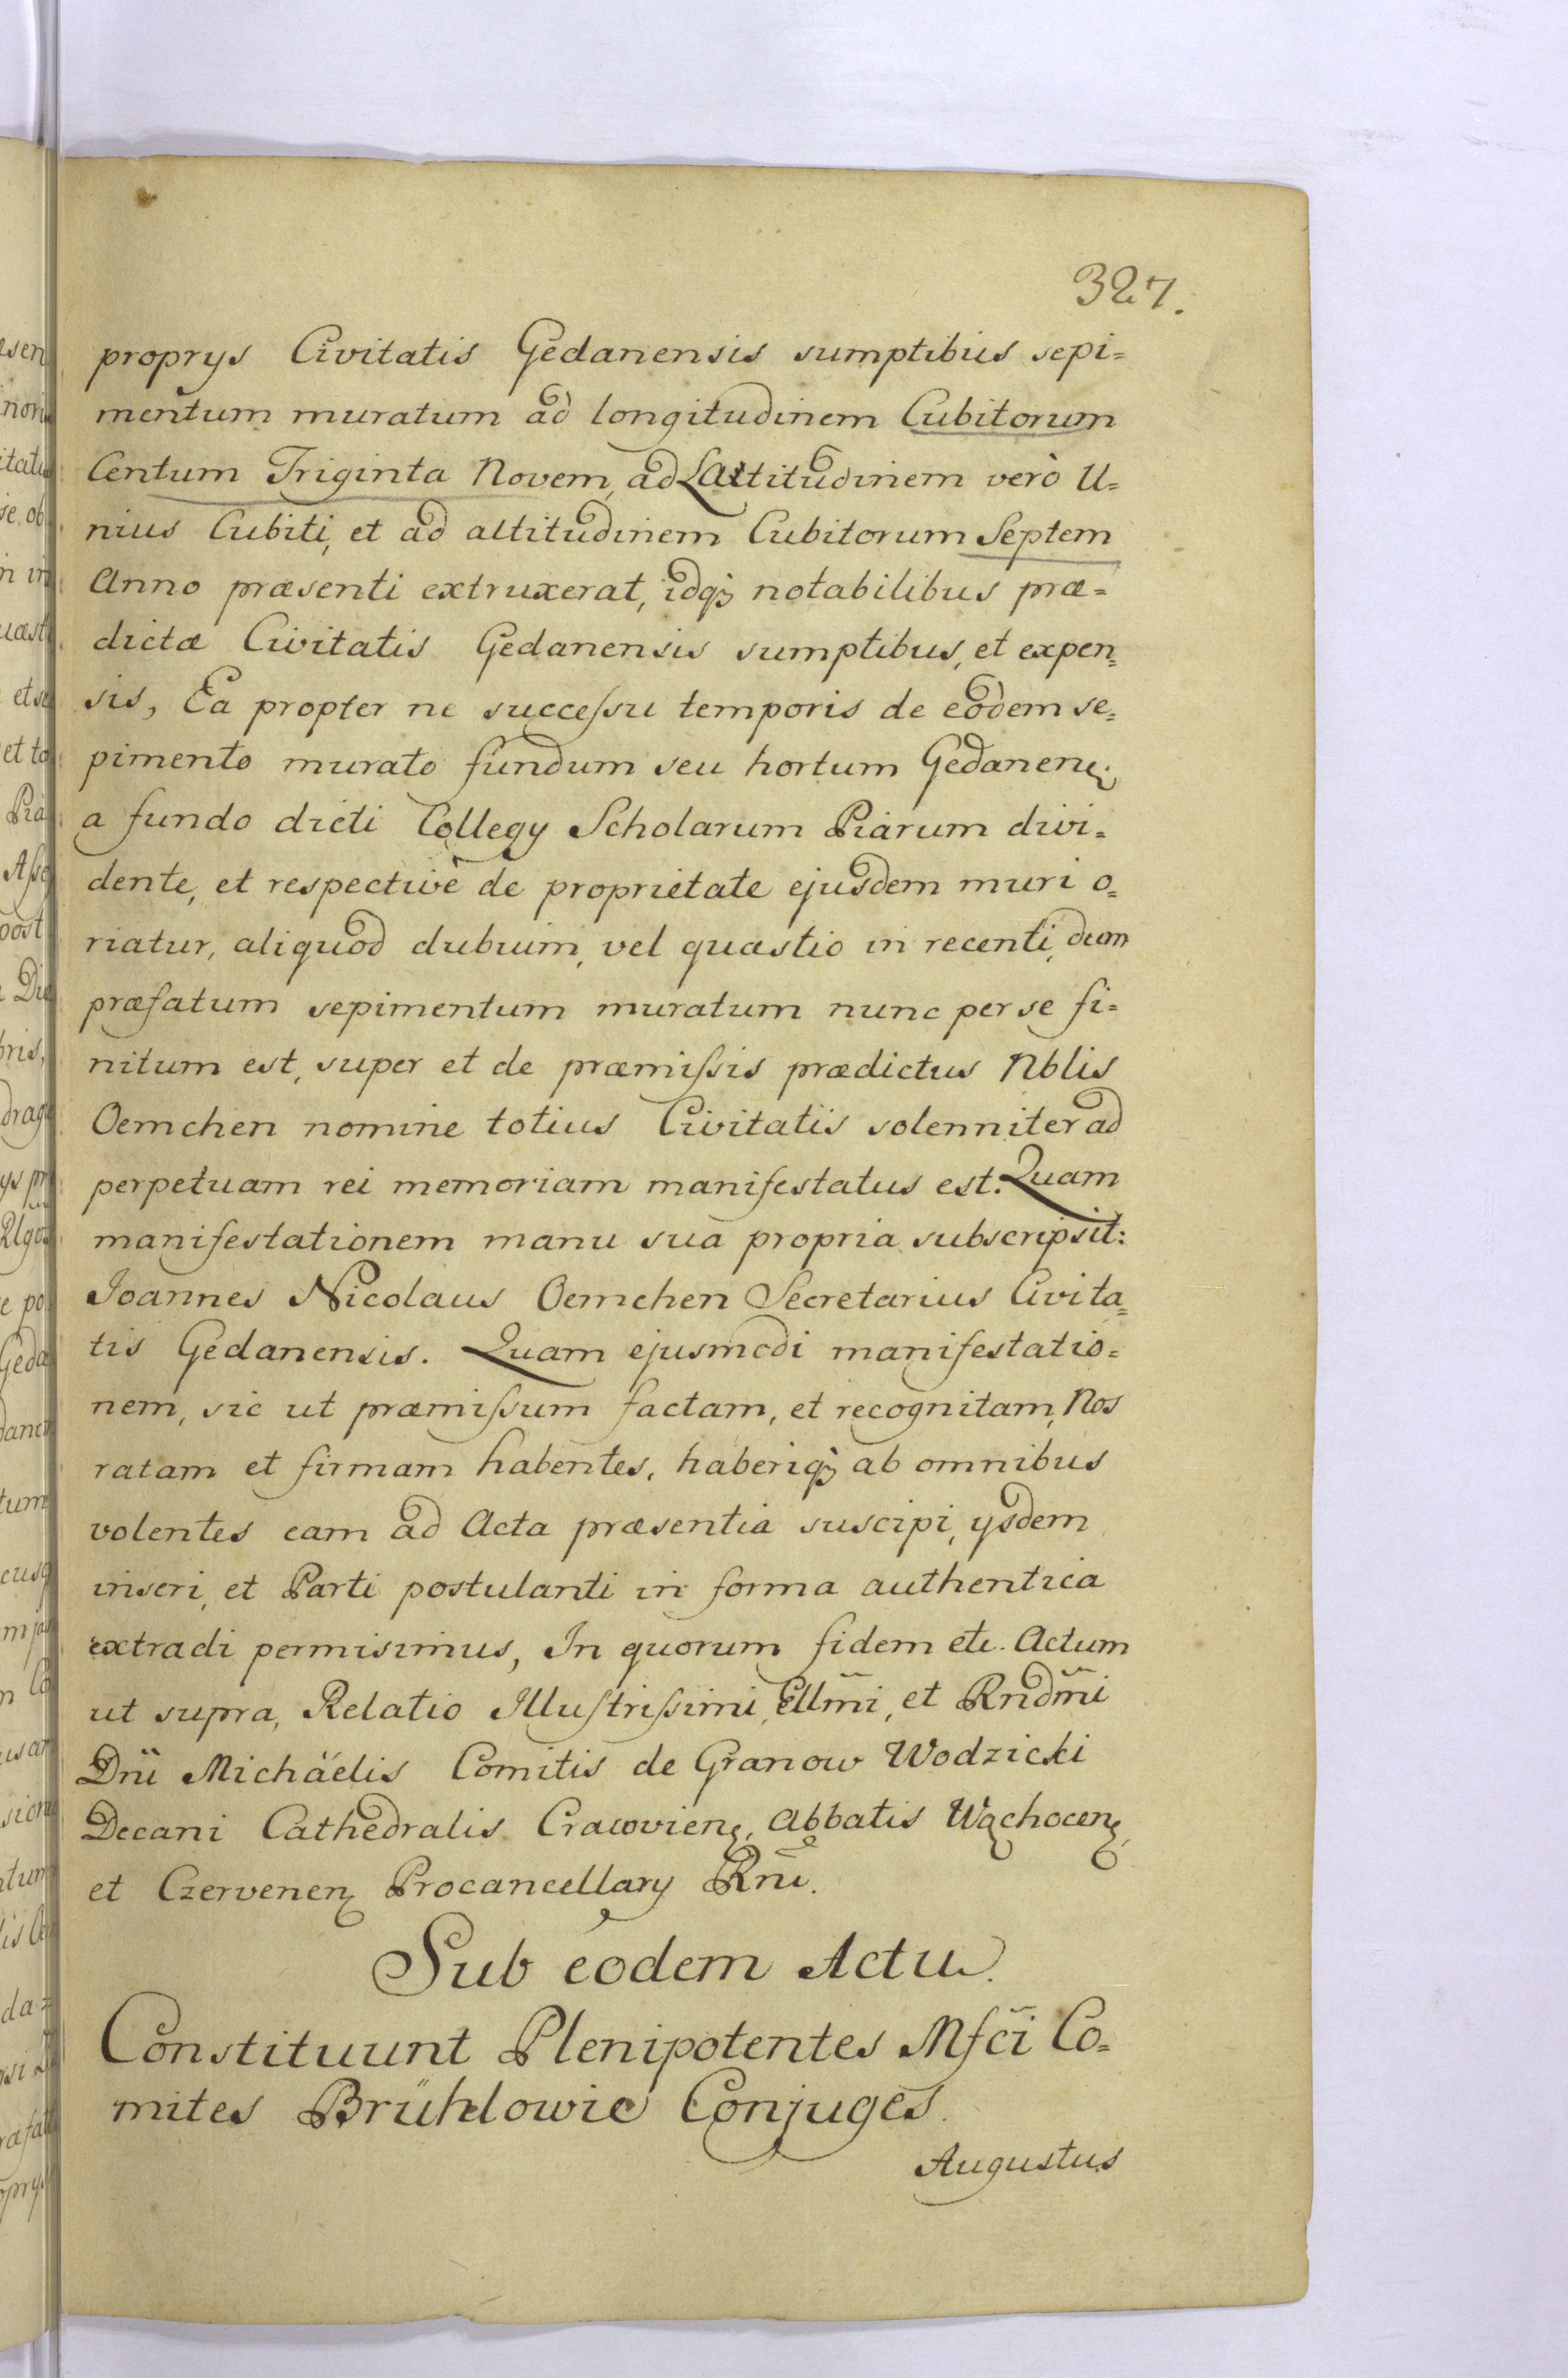 327.
proprys Civitatis Gedanensis sumptibus sepi=
mentum muratum ad longitudinem Cubitorum
Centum Triginta Novem, ad Latitudinem verò U=
nius Cubiti, et ad altitudinem Cubitorum Septem
Anno præsenti extruxerat, idq; notabilibus præ=
dictæ Civitatis Gedanensis sumptibus, et expen=
sis, Ea propter ne succeſsu temporis de eodem se=
pimento murato fundum seu hortum Gedanen:
a fundo dicti Collegy Scholarum Piarum divi=
dente, et respectivè de proprietate ejusdem muri o=
riatur, aliquod dubium, vel quæstio in recenti, dum
præfatum sepimentum muratum nunc per se fi=
nitum est, super et de præmiſsis prædictus Nblis
Oemchen nomine totius Civitatis solenniter ad
perpetuam rei memoriam manifestatus est. Quam
manifestationem manu sua propria subscripsit:
Joannes Nicolaus Oemchen Secretarius Civita=
tis Gedanensis. Quam ejusmodi manifestatio=
nem, sic ut præmiſsum factam, et recognitam, Nos
ratam et firmam habentes, haberiq; ab omnibus
volentes eam ad Acta præsentia suscipi, ysdem
inseri, et Parti postulanti in forma authentica
extradi permisimus, In quorum fidem etc. Actum
ut supra, Relatio Illuſtriſsimi, Ellm̃i, et Rndm̃i
Dn̄i Michäelis Comitis de Granow Wodzicki
Decani Cathedralis Cracovien, Abbatis Wąchocen,
et Czervenen Procancellary Rn̄i.
Sub eodem Actu.
Constituunt Plenipotentes Mfc̄i Co=
mites Brühlowie Conjuges.
Augustus